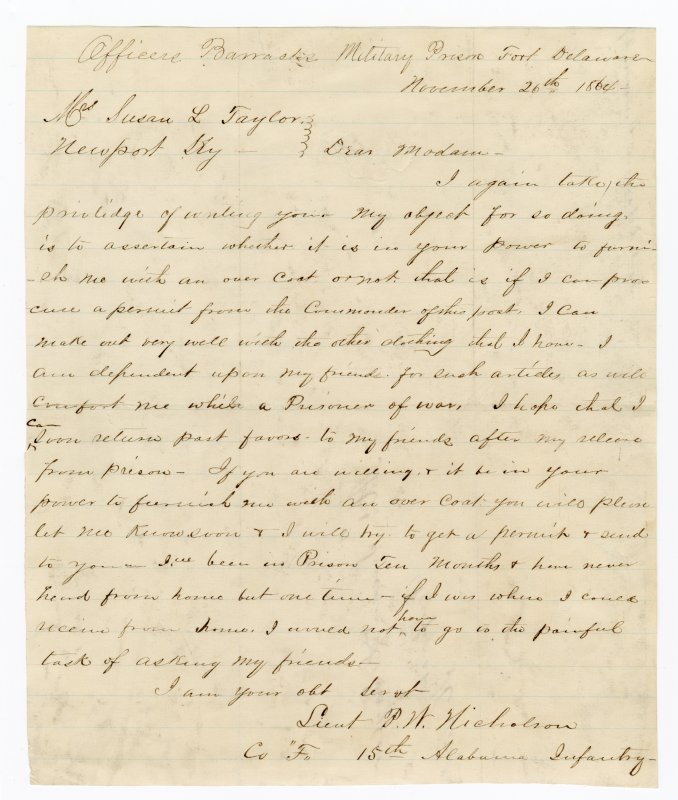 Officers Barracks Military Prison Fort Delaware
November 26th 1864
Mrs Susan L Taylor
Newport Ky — Dear Madam —
I again take the
priviledge of writing your My object for so doing
is to assertain whether it is in your power to furni-
-sh me with an over coat or not. that is if I can pro-
cure a permit from the Commander of this post. I can
make out very well with the other clothing that I have — I
am dependent upon my friends for such articles as will
comfort me while a Prisoner of war. I hope that I
can soon return past favors to my friends after my release
from prison — If you are willing & it be in your
power to furnish me with an over coat you will please
let me know soon & I will try to get a permit & send
to you — I've been in Prison Ten Months & have never
heard from home but one time — if I was where I could
receive from home, I would not have to go to the painful
task of asking my friends —
I am your obt Servt
Lieut P. W. Nicholson
Co "F" 15th Alabama Infantry —